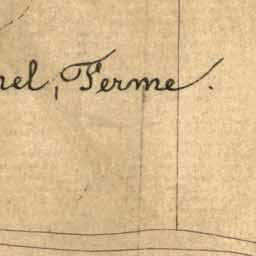 nel, Ferme.